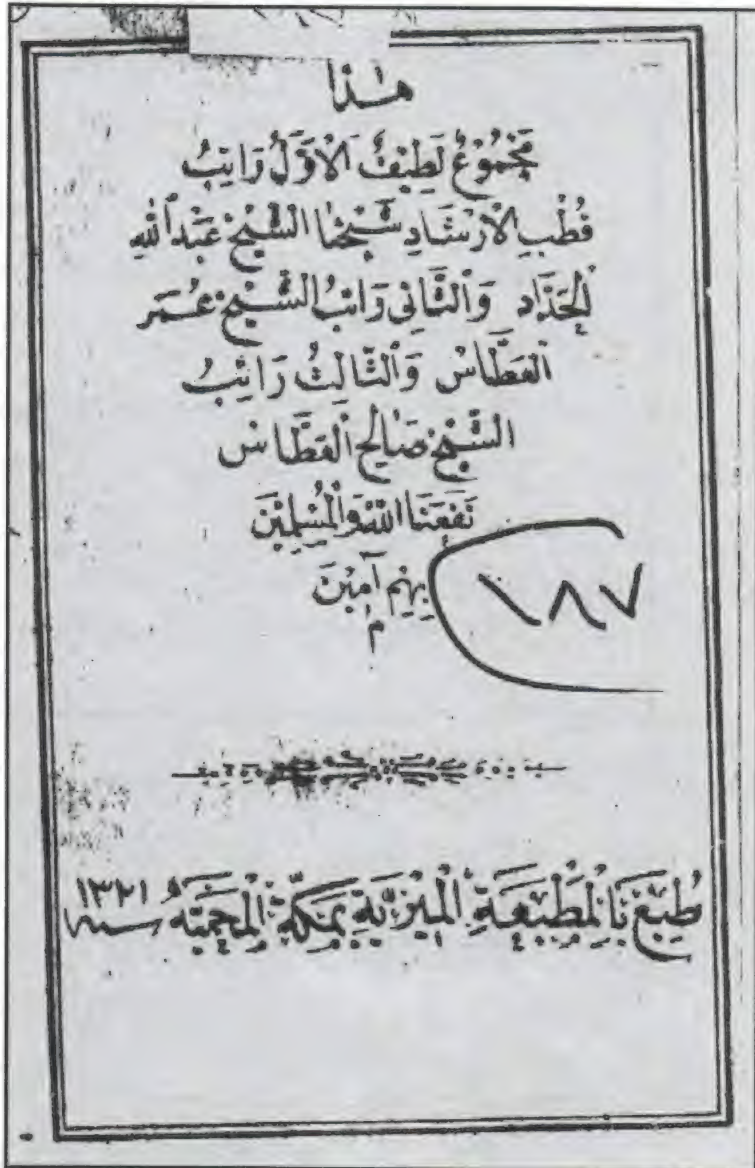 هٰذا
مَجْمُوْعٌ لَطِيْفٌ الْاَوَّلُ رَاتِبُ
قُطْبِ الْاِرْشَادِ شَيْخِنَا الشَّيْخِ عَبْدِ اللهِ
الْحَدَّادِ وَالثَّانِى رَاتِبُ الشَّيْخِ عُمَر
الْعَطَّاسْ وَالثَّالِثُ رَاتِبُ
الشَّيْخِ صَالِحِ الْعَطَّاسْ
نَفَعَنَا اللهُ وَالْمُسْلِمِيْنَ
بِهِمْ آمِيْنَ
م
١٨٧
طُبِعَ بَالْمَطْبَعَةِ الْمِيْرِيَّةِ بِمَكَّةَ الْمَحْمِيَّهْ سنه ١٣٢١